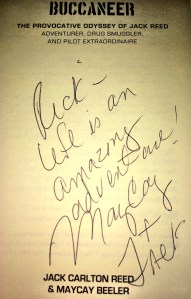 BUCCANEER
THE PROVOCATIVE ODYSSEY OF JACK REED
ADVENTURER, DRUG SMUGGLER,
AND PILOT EXTRAORDINAIRE
Rick –
Life is an
amazing
adventure!
MayCay
JACK CARLTON REED
& MAYCAY BEELER